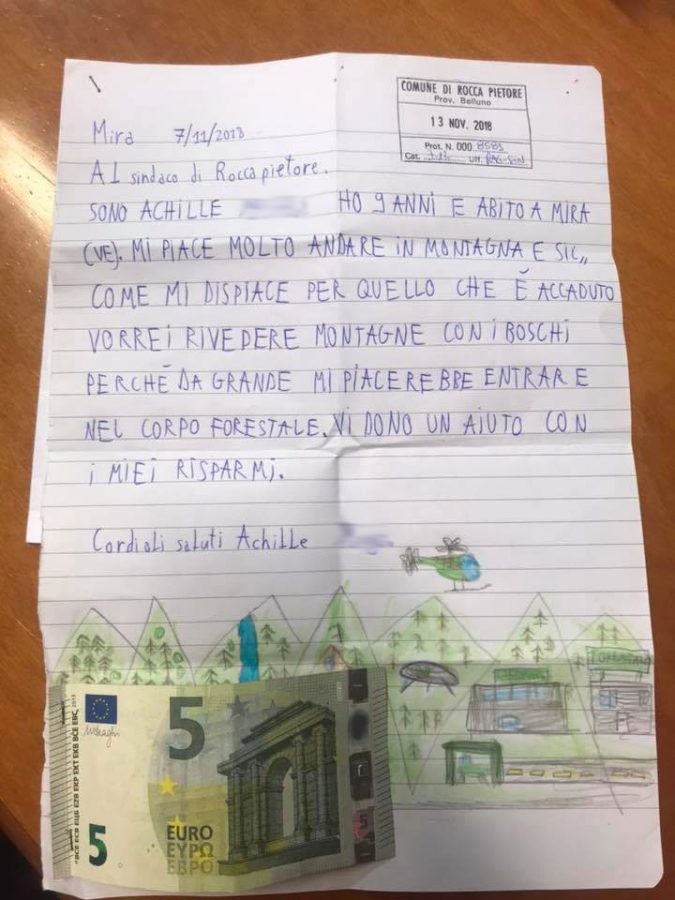 COMUNE DI ROCCA PIETORE
Prov. Belluno
13 NOV. 2018
Prot. N. 000 8585
Cat. Uff.
Mira 7/11/2018
Al sindaco di Roccapietore.
SONO ACHILLE HO 9 ANNI E ABITO A MIRA
(VE). MI PIACE MOLTO ANDARE IN MONTAGNA E SIC,,
COME MI DISPIACE PER QUELLO CHE È ACCADUTO
VORREI RIVEDERE MONTAGNE CON I BOSCHI
PERCHÉ DA GRANDE MI PIACEREBBE ENTRARE
NEL CORPO FORESTALE. VI DONO UN AIUTO CON
I MIEI RISPARMI.
Cordioli saluti Achille
5
EURO
ΕΥΡΩ
ЕВРО
5
BCE ECB ЕЦБ EZB EKP EKT EKB BĊE EBC 2013